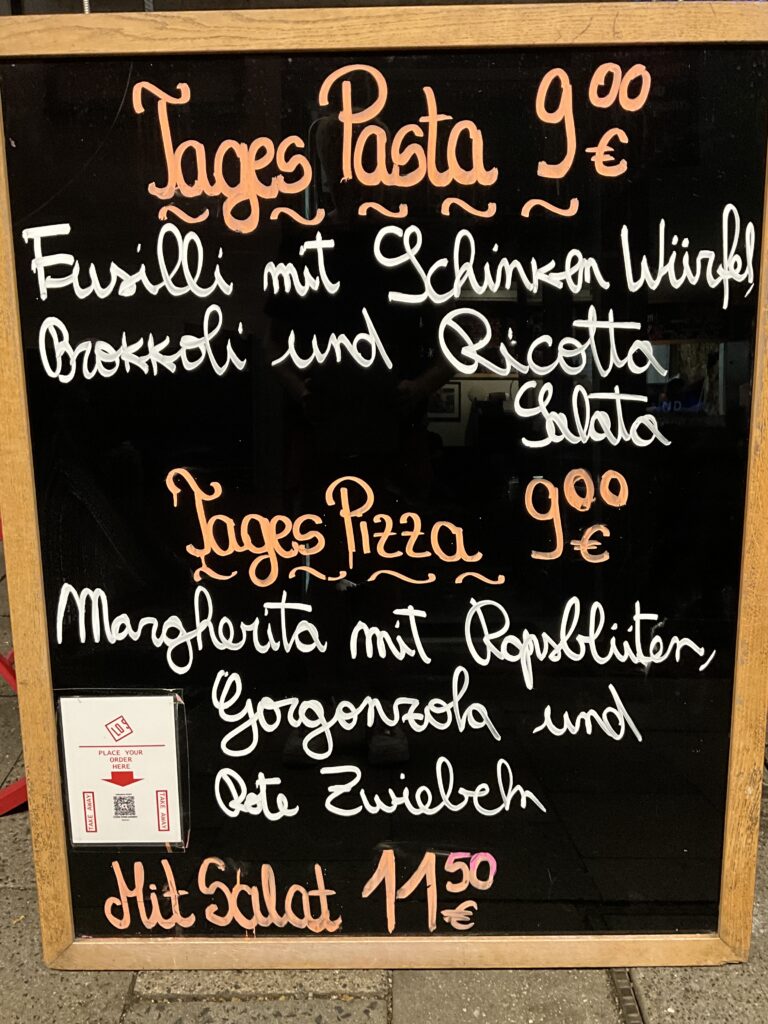 Tages Pasta 9 00 €
Fusilli mit Schinken Würfel,
Brokkoli und Ricotta
Salata
Tages Pizza 9 00 €
Margherita mit Rapsblüten,
Gorgonzola und
Rote Zwiebeln
PLACE YOUR
ORDER
HERE
TAKE AWAY
TAKE AWAY
Mit Salat 11 50 €